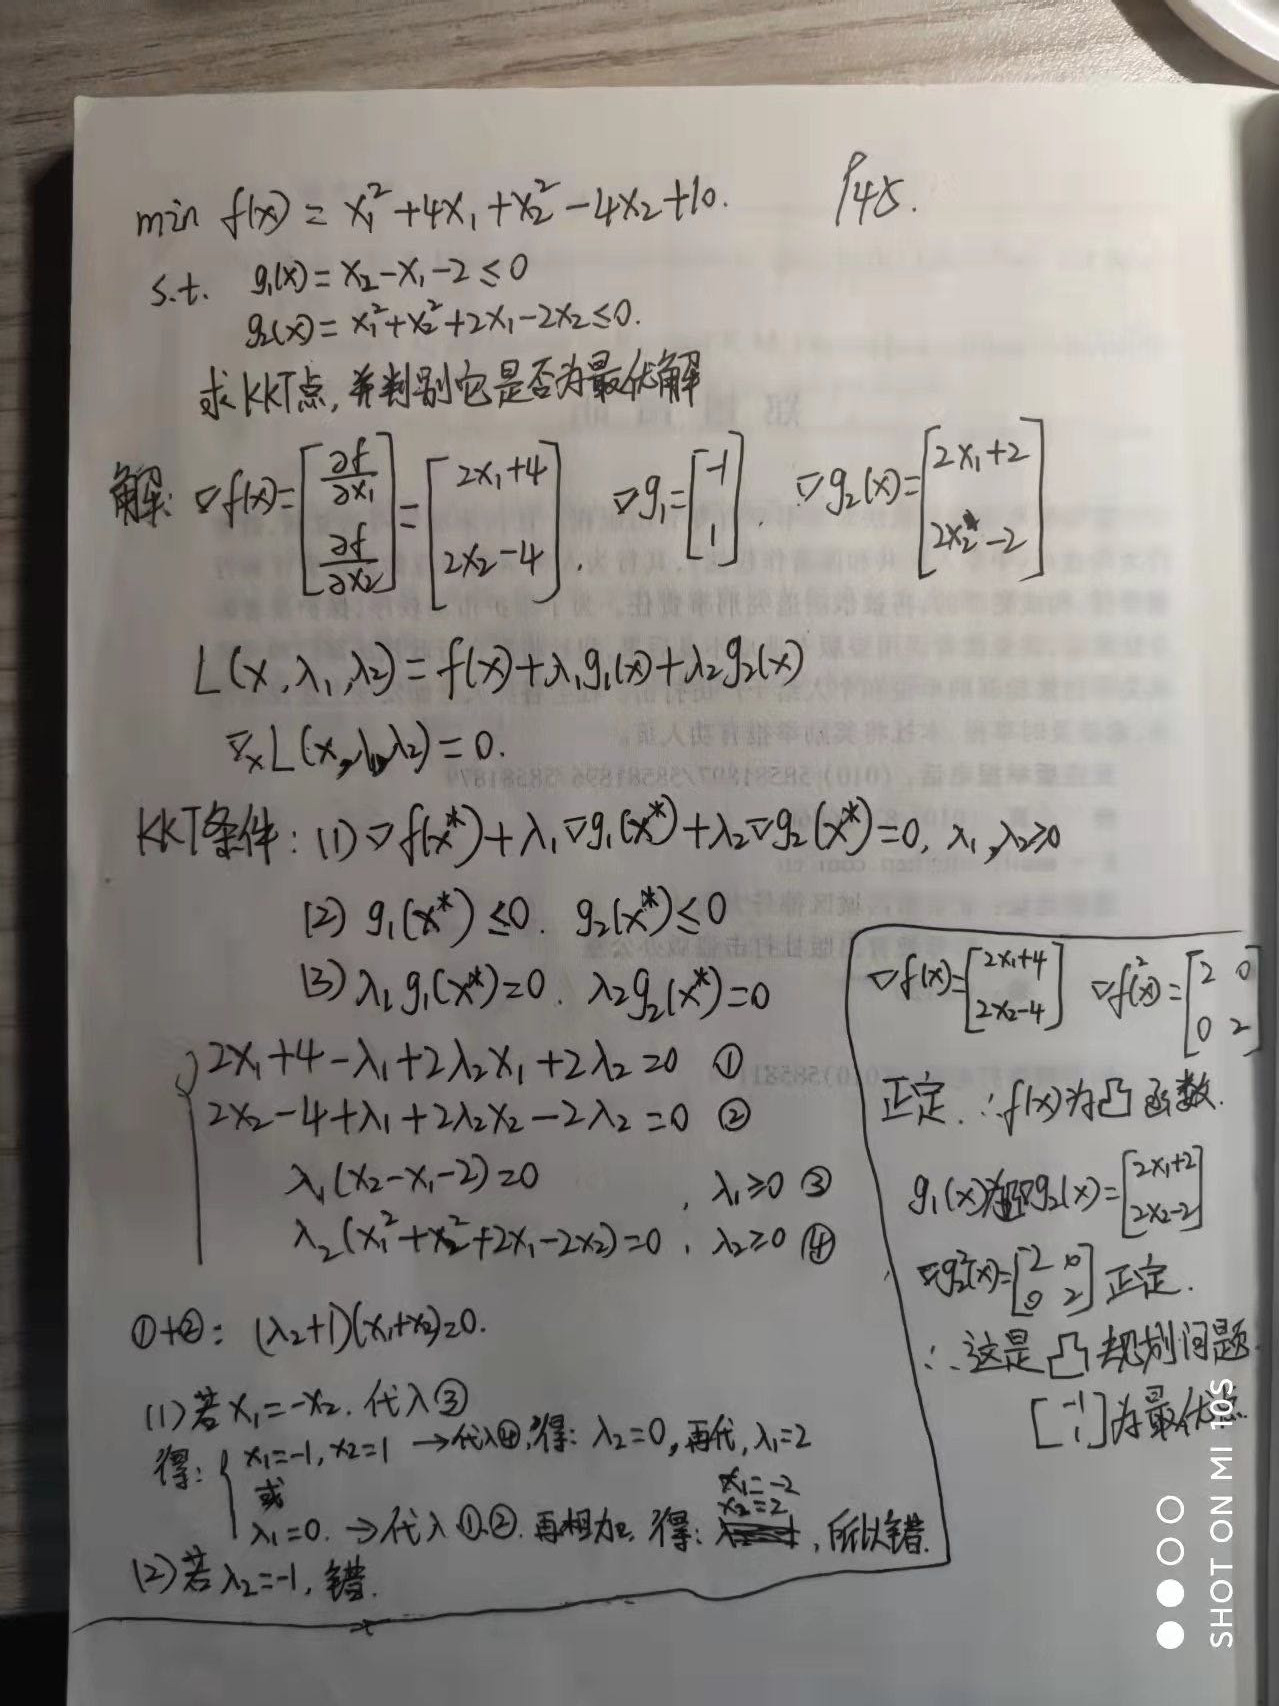 min f(x) = x₁² + 4x₁ + x₂² - 4x₂ + 10. P45.
s.t. g₁(x) = x₂ - x₁ - 2 ≤ 0
g₂(x) = x₁² + x₂² + 2x₁ - 2x₂ ≤ 0.
求KKT点,并判别它是否为最优解
解: ∇f(x) = [∂f/∂x₁ ; ∂f/∂x₂] = [2x₁+4 ; 2x₂-4]. ∇g₁ = [-1 ; 1]. ∇g₂(x) = [2x₁+2 ; 2x₂-2]
L(x, λ₁, λ₂) = f(x) + λ₁g₁(x) + λ₂g₂(x)
∇ₓL(x, λ₁, λ₂) = 0.
KKT条件: (1) ∇f(x*) + λ₁∇g₁(x*) + λ₂∇g₂(x*) = 0, λ₁, λ₂ ≥ 0
(2) g₁(x*) ≤ 0. g₂(x*) ≤ 0
(3) λ₁g₁(x*) = 0. λ₂g₂(x*) = 0
2x₁ + 4 - λ₁ + 2λ₂x₁ + 2λ₂ = 0 ①
2x₂ - 4 + λ₁ + 2λ₂x₂ - 2λ₂ = 0 ②
λ₁(x₂ - x₁ - 2) = 0 , λ₁ ≥ 0 ③
λ₂(x₁² + x₂² + 2x₁ - 2x₂) = 0 , λ₂ ≥ 0 ④
①+②: (λ₂+1)(x₁+x₂) = 0.
(1) 若 x₁ = -x₂. 代入③
得: { x₁ = -1, x₂ = 1 → 代入④,得: λ₂ = 0, 再代, λ₁ = 2
或
λ₁ = 0. → 代入①,②. 再相加. 得: x₁ = -2 x₂ = 2 , 所以错.
(2) 若 λ₂ = -1, 错.
∇f(x) = [2x₁+4 ; 2x₂-4] ∇f²(x) = [2 0 ; 0 2]
正定. ∴ f(x)为凸函数.
g₁(x) ∇g₂(x) = [2x₁+2 ; 2x₂-2]
∇g₂²(x) = [2 0 ; 0 2] 正定.
∴ 这是凸规划问题
[-1 ; 1] 为最优点
SHOT ON MI 10S